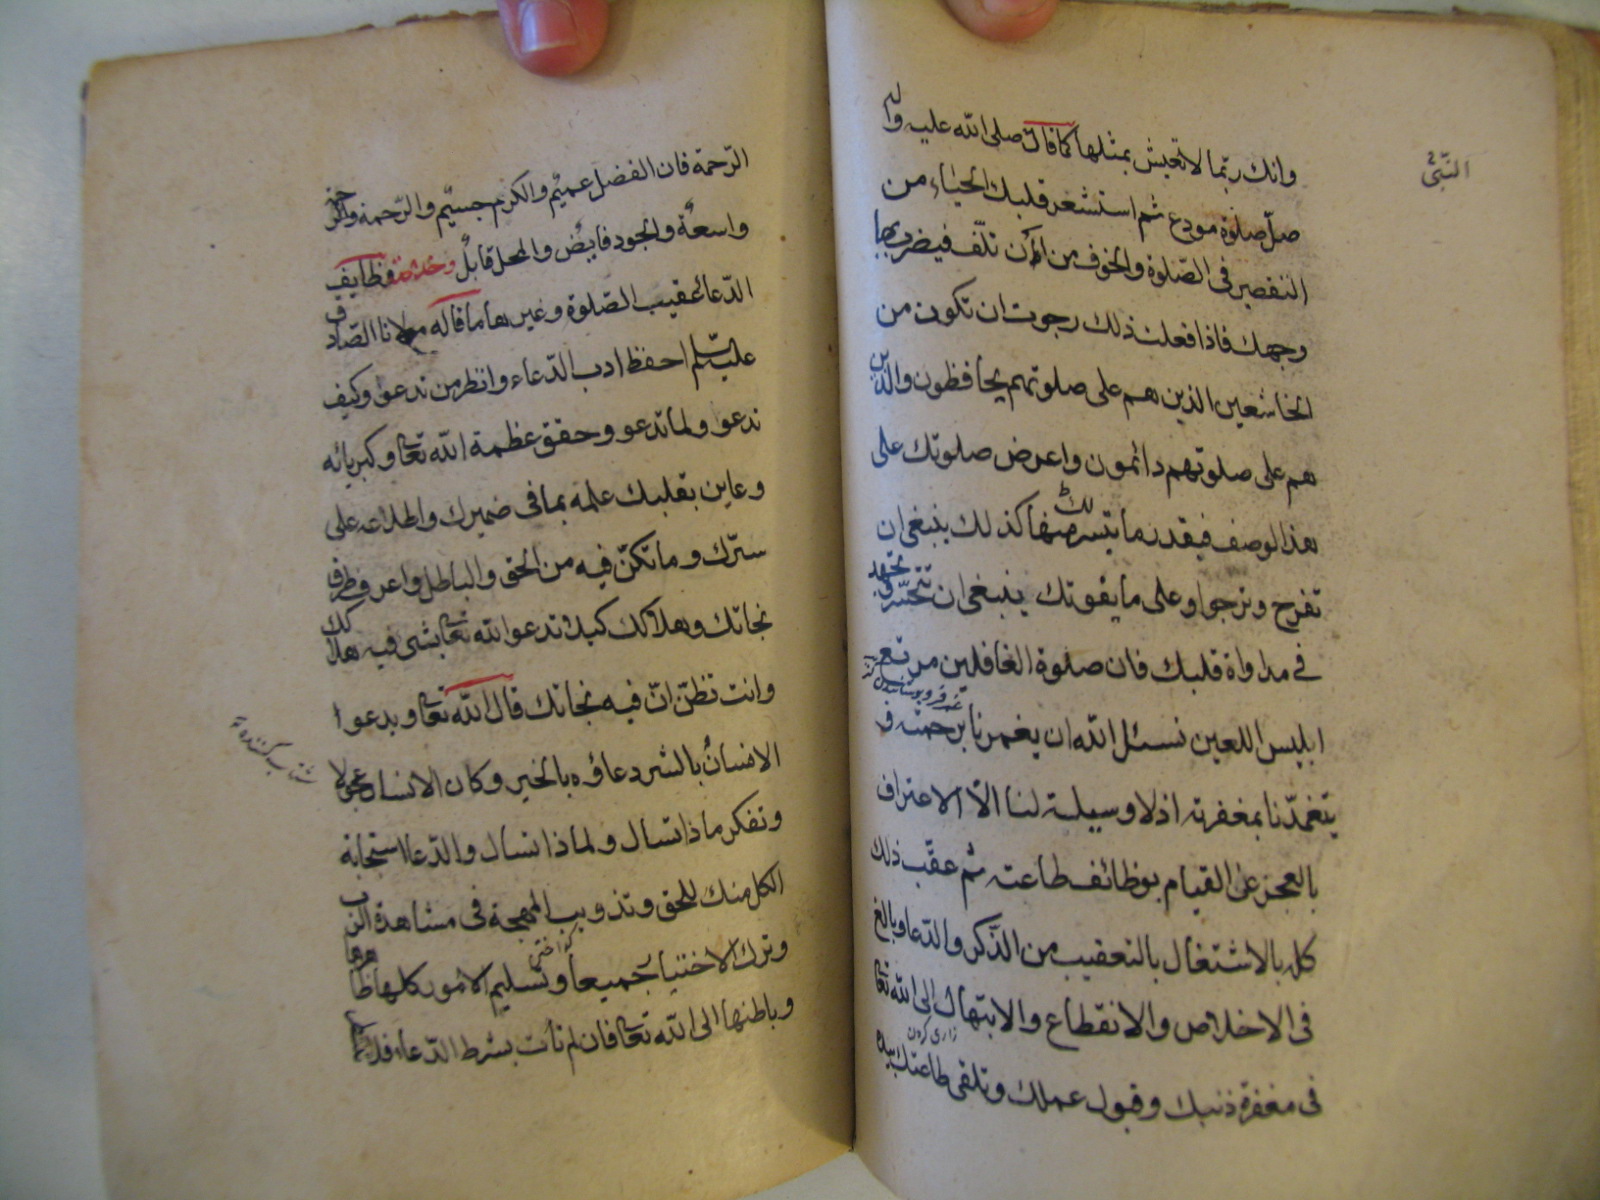 النّبیّ
وانك ربّما لا تعيش بمثلها كما قال صلى الله عليه واله
صلّ صلوة مودع ثم استشعر قلبك الحياء من
التقصير فى الصّلوة والخوف من ان تلّف فيضرب بها
وجهك فاذا فعلت ذلك رجوت ان تكون من
الخاشعين الذين هم على صلوتهم يحافظون والذين
هم على صلوتهم دائمون واعرض صلوتك على
هذا الوصف فبقدر ما يتيسر لك منها كذلك ينبغى ان
تفرح وترجوا وعلى ما يفوتك ينبغى ان تتحسّر وتجتهد
فى مداواة قلبك فان صلوة الغافلين مرتع
ابليس اللعين نسئل الله ان يغمرنا برحمته و
يتغمّدنا بمغفرته اذ لا وسيلة لنا الّا الاعتراف
بالعجز عن القيام بوظائف طاعته ثم عقّب ذلك
كله بالاشتغال بالتعقيب من الذّكر والدّعا وبالغ
فى الاخلاص والانقطاع والابتهال الى الله تعا
زاری کردن
فى مغفرة ذنبك وقبول عملك وتلقى طاعتك بيد
الرّحمة فان الفضل عميم والكرم جسيم والرّحمة
واسعة والجود فايض والمحل قابل وظايف
الدّعا عقيب الصّلوة وغيرها ما قاله مولانا الصّادق
عليه السّلم احفظ ادب الدّعاء وانظر من تدعو وكيف
تدعو ولما تدعو وحقق عظمة الله تعا وكبريائه
وعاين بقلبك علمه بما فى ضميرك واطلاعه على
سرّك وما تكنّ فيه من الحق والباطل واعرف طرق
نجاتك وهلاكك كيلا تدعو الله تعا بشى فيه هلاكك
وانت تظنّ انّ فيه نجاتك قال الله تعا ويدعوا
الانسان بالشر دعاؤه بالخير وكان الانسان عجولا
شتاب کننده
وتفكر ماذا تسال ولماذا تسال والدّعا استجابة
الكل منك للحق وتذويب المهجة فى مشاهدة الرّب
وترك الاختيار جميعا وتسليم الامور كلها ظاهرها
وباطنها الى الله تعا فان لم تأت بشرط الدّعاء فلا